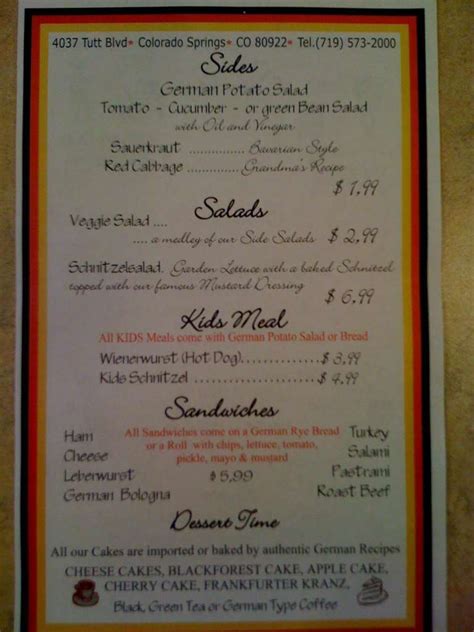 4037 Tutt Blvd★ Colorado Springs★ CO 80922★ Tel.(719) 573-2000
Sides
German Potato Salad
Tomato - Cucumber - or green Bean Salad
with Oil and Vinegar
Sauerkraut .............. Bavarian Style
Red Cabbage .............. Grandma's Recipe
$ 1,99
Salads
Veggie Salad ....
.... a medley of our Side Salads $ 2,99
Schnitzelsalad. Garden Lettuce with a baked Schnitzel
topped with our famous Mustard Dressing
$ 6,99
Kids Meal
All KIDS Meals come with German Potato Salad or Bread
Wienerwurst (Hot Dog)................... $ 3,99
Kids Schnitzel .............................. $ 4,99
Sandwiches
All Sandwiches come on a German Rye Bread
or a Roll with chips, lettuce, tomato,
pickle, mayo & mustard
$ 5,99
Ham
Cheese
Leberwurst
German Bologna
Turkey
Salami
Pastrami
Roast Beef
Dessert Time
All our Cakes are imported or baked by authentic German Recipes
CHEESE CAKES, BLACKFOREST CAKE, APPLE CAKE,
CHERRY CAKE, FRANKFURTER KRANZ,
Black, Green Tea or German Type Coffee